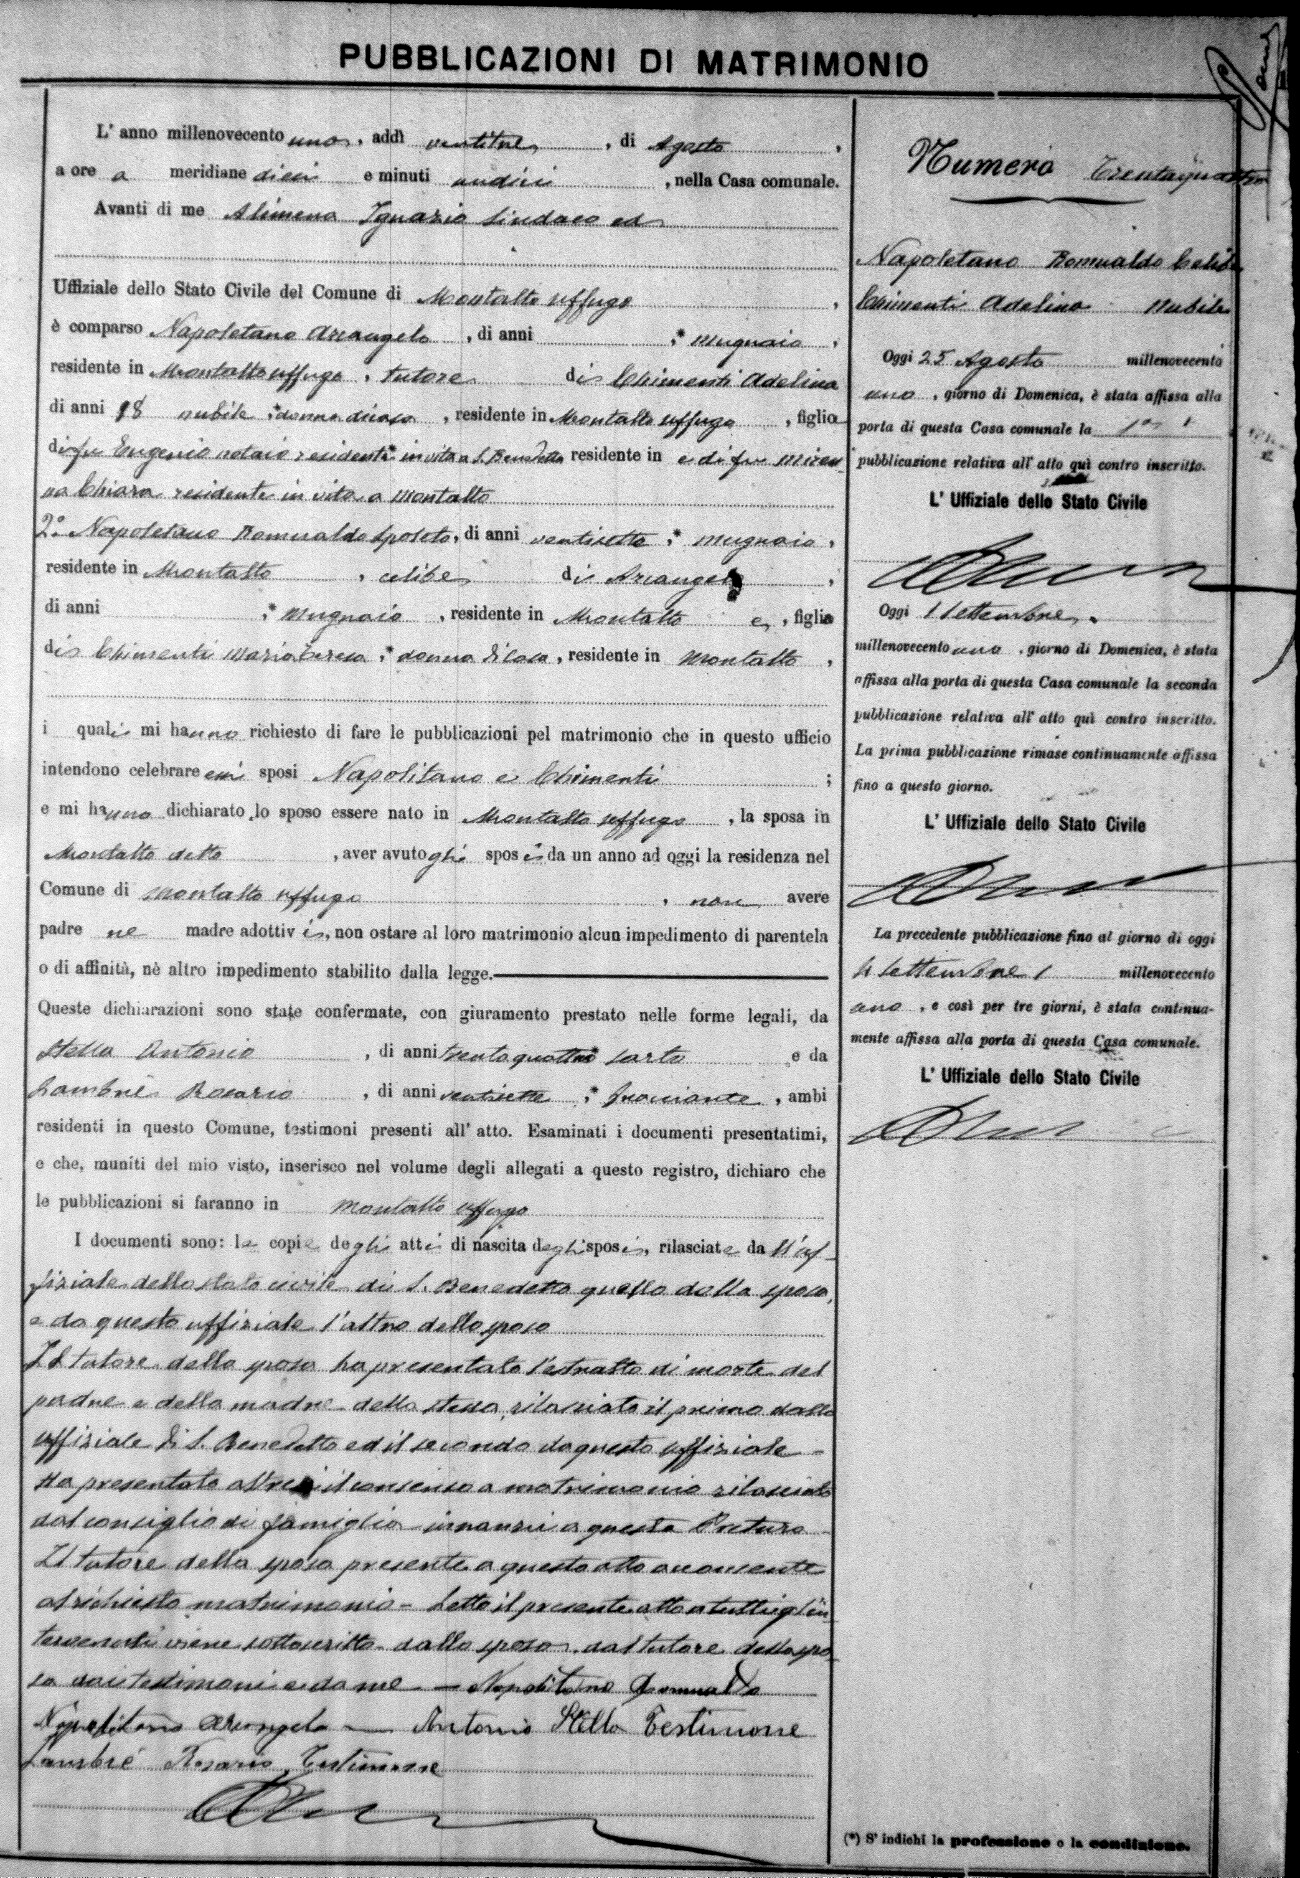 PUBBLICAZIONI DI MATRIMONIO
L' anno millenovecento uno, addì ventitre, di Agosto,
a ore a meridiane dieci e minuti undici, nella Casa comunale.
Avanti di me Alimena Ignazio Sindaco ed
Uffiziale dello Stato Civile del Comune di Montalto Uffugo,
è comparso Napoletano Arcangelo, di anni ;* mugnaio,
residente in Montalto uffugo, tutore di Chimenti Adelina
di anni 18 nubile ;* donna di casa, residente in Montalto uffugo, figlia
di fu Eugenio notaio residente in vita a S. Benedetto residente in e di fu Miren
na Chiara residente in vita a Montalto
2° Napoletano Romualdo sposo, di anni ventisette ;* mugnaio,
residente in Montalto, celibe di Arcangelo,
di anni ;* mugnaio, residente in Montalto e, figlio
di Chimenti Maria Teresa ;* donna di casa, residente in Montalto,
i quali mi hanno richiesto di fare le pubblicazioni pel matrimonio che in questo ufficio
intendono celebrare essi sposi Napolitano e Chimenti ;
e mi hanno dichiarato lo sposo essere nato in Montalto uffugo, la sposa in
Montalto detto, aver avuto gli sposi da un anno ad oggi la residenza nel
Comune di Montalto uffugo, non avere
padre ne madre adottivi, non ostare al loro matrimonio alcun impedimento di parentela
o di affinità, nè altro impedimento stabilito dalla legge.
Queste dichiarazioni sono state confermate, con giuramento prestato nelle forme legali, da
Stella Antonio, di anni trentaquattro sarto e da
Lambrè Rosario, di anni ventisette ;* bracciante, ambi
residenti in questo Comune, testimoni presenti all' atto. Esaminati i documenti presentatimi,
e che, muniti del mio visto, inserisco nel volume degli allegati a questo registro, dichiaro che
le pubblicazioni si faranno in Montalto uffugo
I documenti sono: le copie degli atti di nascita degli sposi, rilasciate da ll'uf
fiziale dello stato civile di S. Benedetto quello della sposa,
e da questo uffiziale l'altro dello sposo
Il tutore della sposa ha presentato l'estratto di morte del
padre e della madre della stessa, rilasciato il primo dallo
uffiziale di S. Benedetto ed il secondo da questo uffiziale -
Ha presentato altresì il consenso a matrimonio rilasciato
dal consiglio di famiglia innanzi a questa Pretura
Il tutore della sposa presente a questo atto acconsente
al richiesto matrimonio - Letto il presente atto a tutti gl'in
tervenuti viene sottoscritto dallo sposo, dal tutore della spo
sa dai testimoni e da me - Napolitano Romualdo
Napolitano Arcangelo - Antonio Stella Testimone
Lambrè Rosario Testimone
Numero Trentaquattro
Napoletano Romualdo Celibe
Chimenti Adelina nubile
Oggi 25 Agosto millenovecento
uno, giorno di Domenica, è stata affissa alla
porta di questa Casa comunale la 1a
pubblicazione relativa all' atto quì contro inscritto.
L' Uffiziale dello Stato Civile
Oggi 1 Settembre
millenovecento uno, giorno di Domenica, è stata
affissa alla porta di questa Casa comunale la seconda
pubblicazione relativa all' atto quì contro inscritto.
La prima pubblicazione rimase continuamente affissa
fino a questo giorno.
L' Uffiziale dello Stato Civile
La precedente pubblicazione fino al giorno di oggi
4 Settembre millenovecento
uno, e così per tre giorni, è stata continua-
mente affissa alla porta di questa Casa comunale.
L' Uffiziale dello Stato Civile
(*) S' indichi la professione o la condizione.